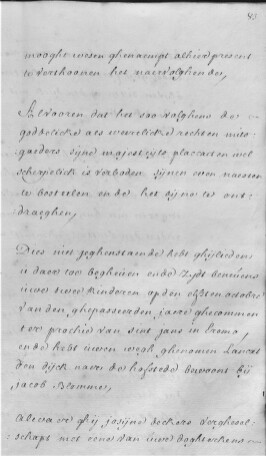 43
mooght wesen ghenaempt alhier present
te verthoonen het naervolghende,
Alvooren dat het soo volghens de
goddelicke als weerelicke rechten mits-
gaeders sijne majesteijts placcaeten wel
scherpelick is verboden sijnen even naesten
te bestelen ende het sijne te ont-
draeghen,
Dies niet jeghenstaende hebt ghijlieden
u daer toe begheven ende
uwe twee kinderen op den elfsten octobre
van den ghepasseerden jaere ghecommen
ter prochie van sint jans in Eremo,
ende hebt uwen wegh ghenomen lancxt
den dijck naer de hofstede bewoont bij
jacob Blomme,
alwaer ghij josijne dockers verghesel-
schapt met eene van uwe dochterkens